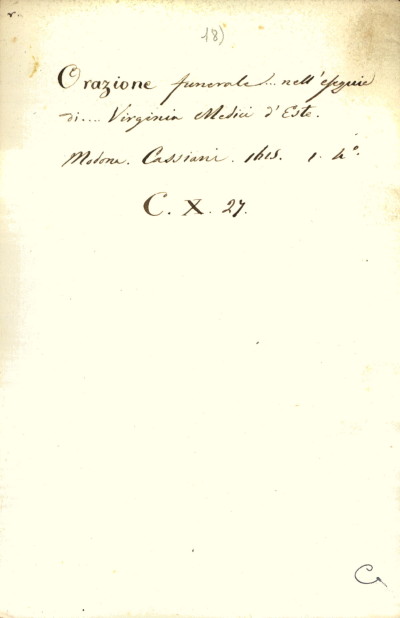 18)
Orazione funerale... nell'esequie
di.... Virginia Medici d'Este.
Modona. Cassiani. 1615. 1. 4°.
C. X. 27.
C